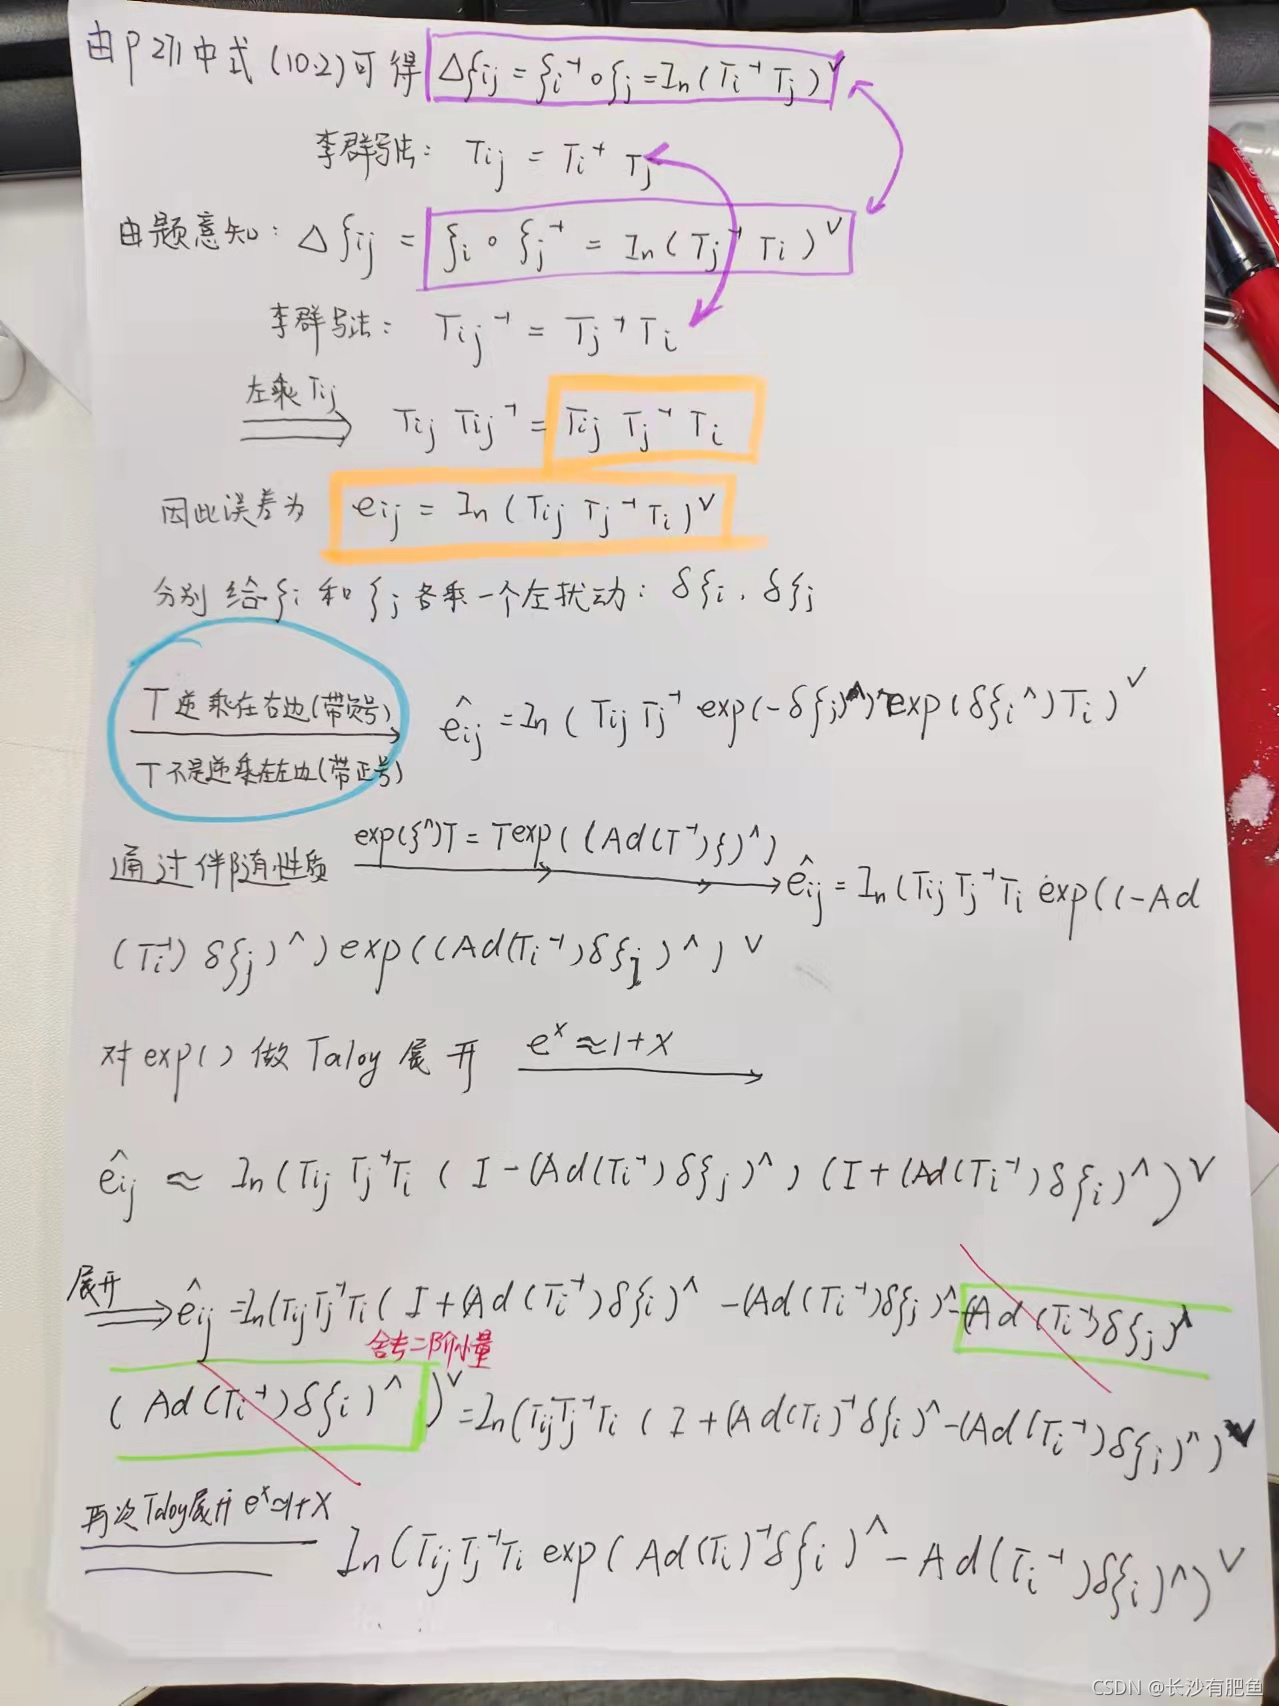 由P271中式(10.2)可得 Δξij = ξi⁻¹∘ξj = ln(Ti⁻¹Tj)^∨
李群写法: Tij = Ti⁻¹ Tj
由题意知: Δξij = ξi∘ξj⁻¹ = ln(Tj⁻¹Ti)^∨
李群写法: Tij⁻¹ = Tj⁻¹Ti
左乘Tij ⟹ Tij Tij⁻¹ = Tij Tj⁻¹ Ti
因此误差为 eij = ln(Tij Tj⁻¹Ti)^∨
分别给ξi和ξj各乘一个左扰动: δξi, δξj
T逆乘在右边(带负号)
T不是逆乘在左边(带正号)
êij = ln(Tij Tj⁻¹ exp(-δξj)^∧) exp(δξi^∧)Ti)^∨
通过伴随性质 exp(ξ^∧)T = Texp((Ad(T⁻¹)ξ)^∧) êij = ln(Tij Tj⁻¹Ti exp((-Ad
(Ti⁻¹)δξj)^∧)exp((Ad(Ti⁻¹)δξi)^∧)^∨
对exp()做Taloy展开 e^x≈1+x
êij ≈ ln(Tij Tj⁻¹Ti (I-(Ad(Ti⁻¹)δξj)^∧)(I+(Ad(Ti⁻¹)δξi)^∧)^∨
展开 ⟹ êij = ln(TijTj⁻¹Ti(I+(Ad(Ti⁻¹)δξi)^∧-(Ad(Ti⁻¹)δξj)^∧-(Ad(Ti⁻¹)δξj)^∧
舍去二阶小量
(Ad(Ti⁻¹)δξi)^∧)^∨ = ln(TijTj⁻¹Ti(I+(Ad(Ti)⁻¹δξi)^∧-(Ad(Ti⁻¹)δξj)^∧)^∨
再次Taloy展开 e^x≈1+x
ln(TijTj⁻¹Ti exp(Ad(Ti)⁻¹δξi)^∧-Ad(Ti⁻¹)δξi)^∧)^∨
CSDN @长沙有肥鱼